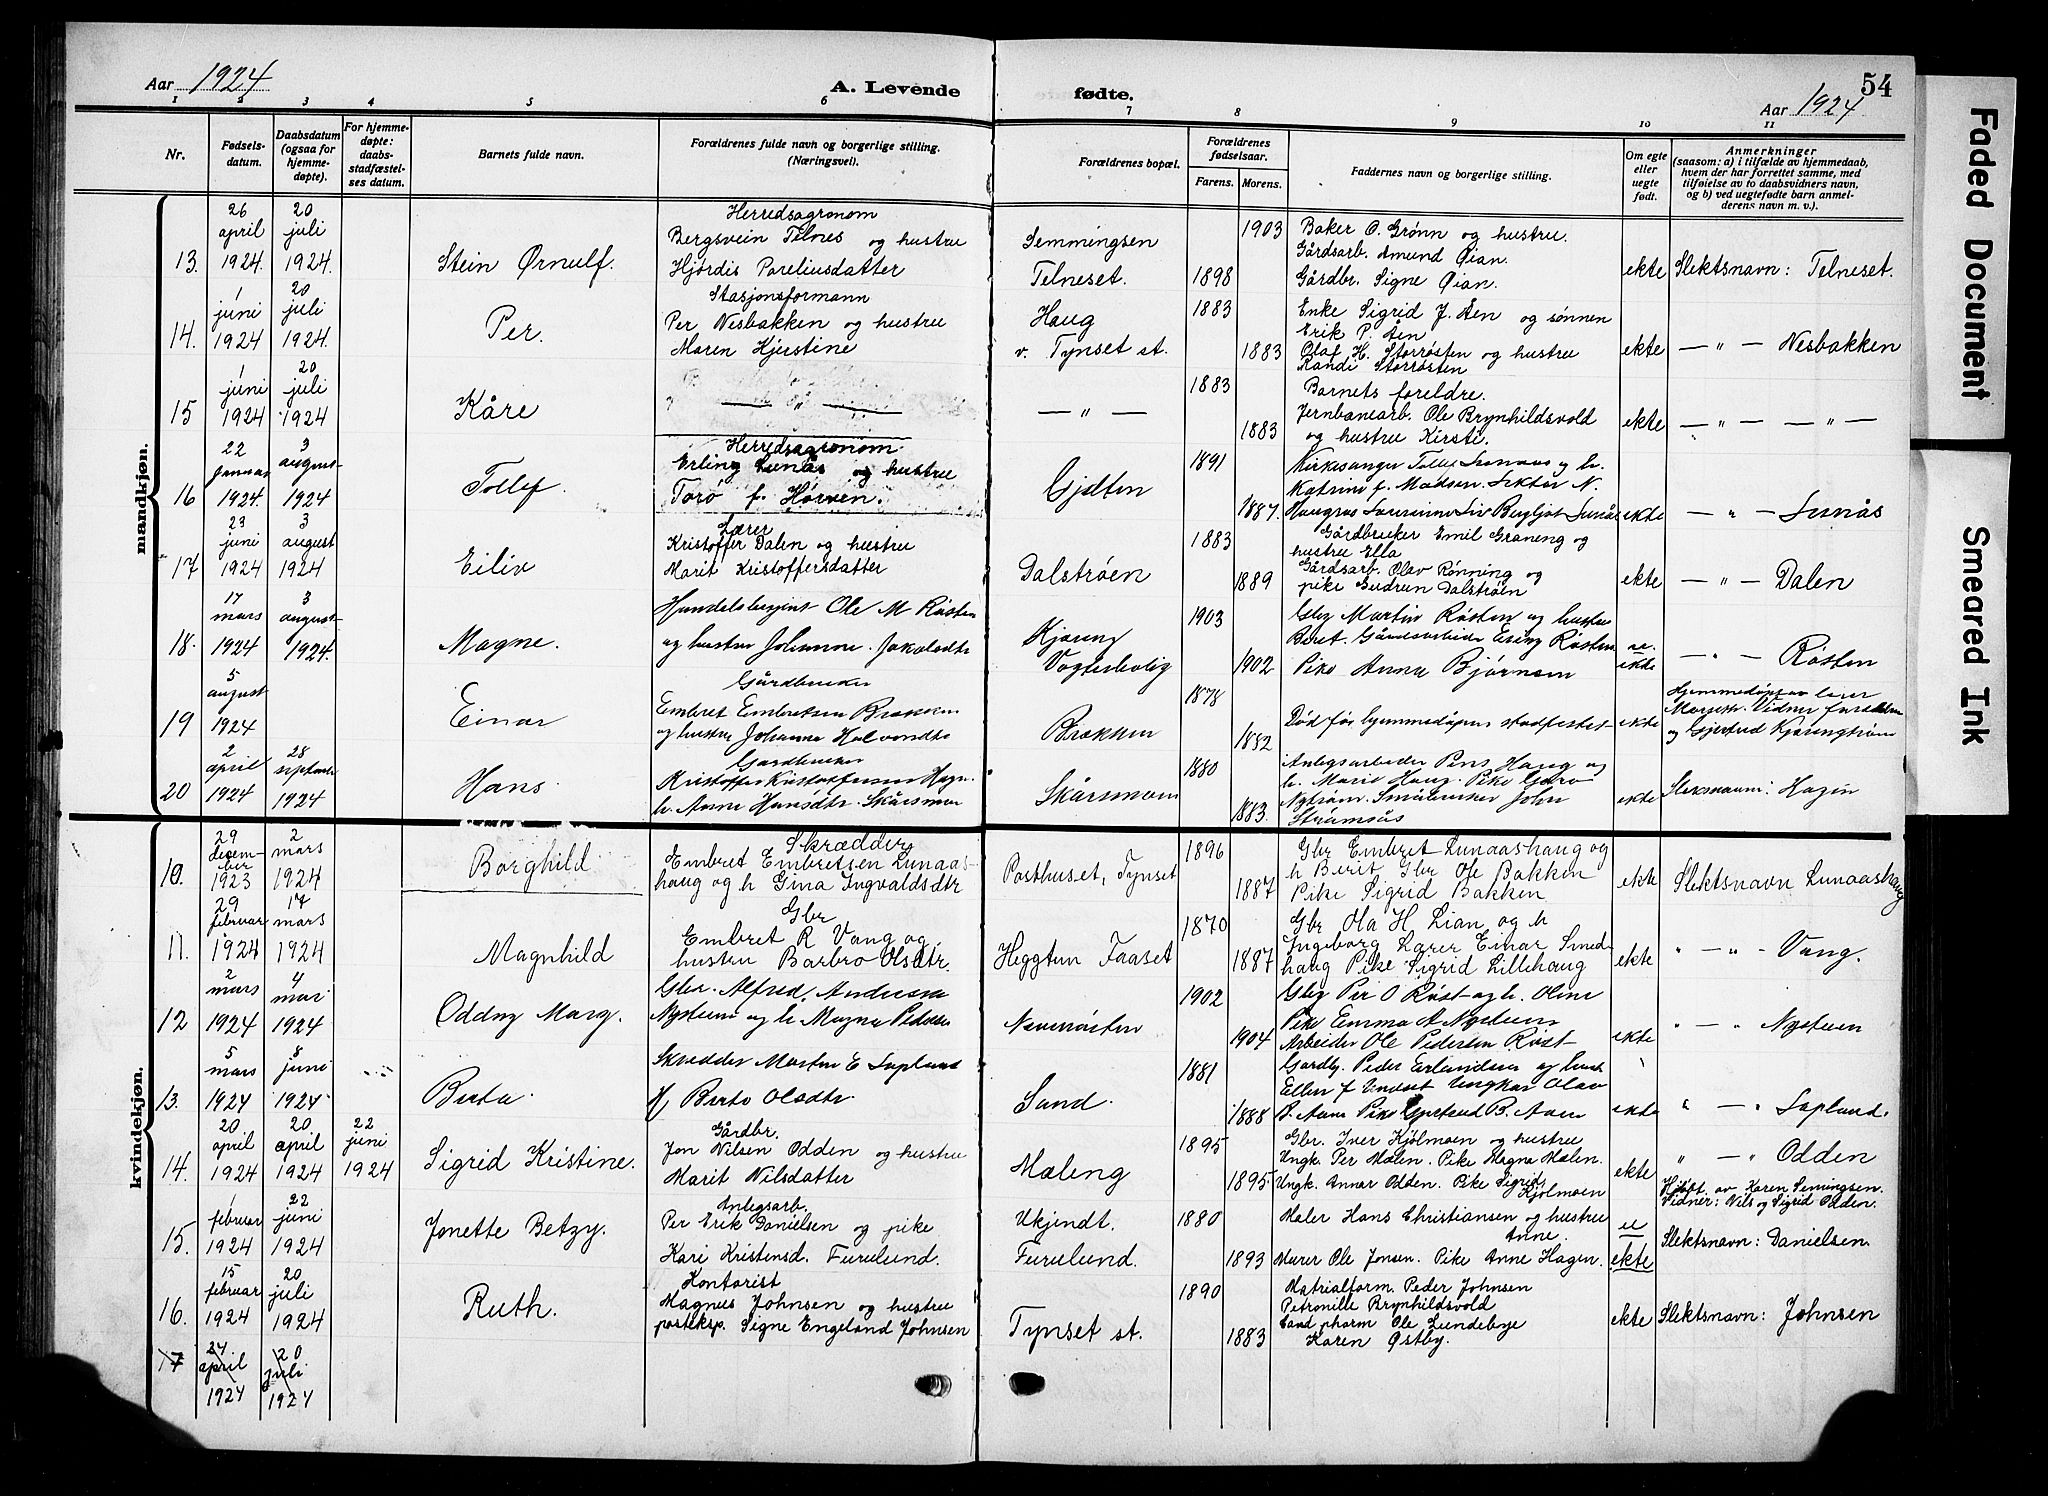 Aar 1924
A. Levende
fødte.
54
Aar 1924
1 2 3 4 5 6 7 8 9 10 11
Nr.
Fødsels-
datum.
Daabsdatum
(ogsaa for
hjemme-
døpte).
For hjemme-
døpte:
daabs-
stadfæstel-
ses datum.
Barnets fulde navn.
Forældrenes fulde navn og borgerlige stilling.
(Næringsvei).
Forældrenes bopæl.
Forældrenes
fødselsaar.
Farens. Morens.
Faddernes navn og borgerlige stilling.
Om egte
eller
uegte
født.
Anmerkninger
(saasom: a) i tilfælde av hjemmedaab,
hvem der har forrettet samme, med
tilføielse av to daabsvidners navn,
og b) ved uegtefødte barn anmel-
derens navn m. v.).
mandkjøn.
13. 26 april 1924. 20 juli 1924.
Stein Ørnulf.
Herredsagronom
Bergsvein Telnes og hustru
Hjördis Pareliusdatter
Semmingsen
Telneset.
1903
1898
Baker O. Grønn og hustru.
Gårdsarb. Amund Øian.
Gårdbr. Signe Øian.
ekte
Slektsnavn: Telneset.
14. 1 juni 1924 20 juli 1924.
Per.
Stasjonsformann
Per Nesbakken og hustru
Maren Kjerstine
Haug
v. Tynset st.
1883
1883
Enke Sigrid J. Aen og sønnen
Erik P. Aen
Olaf H. Storrøsten og hustru
Randi Storrøsten
ekte
— " — Nesbakken
15 1 juni 1924 20 juli 1924
Kåre
— " —
— " —
1883
1883
Barnets foreldre.
Jernbanearb. Ole Brynhildsvold
og hustru Kirsti.
ekte
— " — — " —
16 22 januar 1924. 3 august 1924
Tollef.
Herredsagronom
Erling Lunås og hustru
Torø f. Horven.
Gjelten
1891
1887.
Kirkesanger Tollef Lunaas og h.
Katrine f. Madsen.
ekte
— " — Lunås
17 23 juni 1924 3 august 1924
Eiliv
Lærer
Kristoffer Dalen og hustru
Marit Kristoffersdatter
Dalstrøen
1883
1889
Gårdbruker Emil Graneng og
hustru Ella
Gårdsarb. Olav Rønning og
pike Gudrun Dalstrøen
ekte
— " — Dalen
18. 17 mars 1924 3 august 1924.
Magne.
Handelsbetjent Ole M Røsten
og hustru Johanne Jakobsdtr
Kjøreng
Vogterbolig
1903
1902
Gbr Martin Røsten og hustru
Beret. Gårdsarbeider Erling Røsten
Pike Anna Bjørnsen
u.
ekte
— " — Røsten
19 5 august 1924
Einar
Gårdbruker
Embret Embretsen Brækken
og hustru Johanna Halvorsdtr
Brækken
1878
1882
Død før hjemmedåpens stadfestet-
ekte
Hjemmedøpt av lærer
og Gjertrud Kjøringstrøm
20 2 april 1924 28 september 1924
Hans.
Gardbruker
Kristoffer Kristoffersen Hagen
h. Anne Hansdtr. Skårsmoen
Skårsmoen
1880
1883.
Anlegsarbeider Pens Haug og
h. Marie Haug. Pike Guro
Nytrøen. Småbruker John
Strømsås
ekte
Slektsnavn: Hagen
kvindekjøn.
10. 29 decem-
ber
1923 2 mars 1924
Borghild
Skrædder
Embret Embretsen Lunaas-
haug og h Gina Ingvaldsdtr
Posthuset, Tynset
1896
1887
Gbr Embret Lunaashaug og
h Berit Gbr Ole Bakken
Pike Sigrid Bakken
ekte
Slektsnavn Lunaashaug
11. 29 februar 1924 17 mars 1924
Magnhild
Gbr
Embret R Vang og
hustru Barbro Olsdtr.
Heggtun Faaset
1870
1887
Gbr Ola H Lian og h
Ingeborg Lærer Einar Smed-
haug Pike Sigrid Lillehaug
ekte
" — " — Vang.
12 2 mars 1924 4 mai 1924
Oddny Marg.
Gbr. Alfred Andersen
Nysteen og h Magna Pedersen
Nønrøsten
1902
1904
Gbr Per O Røst og h. Oline
Pike Emma A Nysteen
Arbeider Ole Pedersen Røst
ekte
" — " Nysteen
13. 5 mars 1924 8 juni 1924
Berta
Skredder Morten E Sæplund
H Berte Olsdtr
Sand.
1881
1888
Gardbr. Peder Erlandsen og hust
Ellen f Undset Ungkar Olav
B. Aaen Pike Gjertrud B. Aaen
ekte
" — " Sæplund.
14. 20 april 1924 20 april 1924 22 juni 1924
Sigrid Kristine.
Gårdbr.
Jon Nilsen Odden og hustru
Marit Nilsdatter
Mæleng
1895
1895
Gbr. Iver Kjølmoen og hustru
Ungk. Per Mælen. Pike Magna Mælen.
Ungk. Annar Odden. Pike Sigrid
Kjølmoen
ekte
" — " Odden
Hjdøpt. av Karen Semingsen.
Vidner: Nils og Sigrid Odden.
15. 1 februar 1924 22 juni 1924
Jonette Betzy.
Anlegsarb.
Per Erik Danielsen og pike
Kari Kristensd. Furulund.
Ukjendt.
Furulund.
1880
1893
Maler Hans Christiansen og hustru
Anne.
Murer Ole Jensen. Pike Anne Hagen.
u
ekte
Slektsnavn: Danielsen.
16. 15 februar 1924 20 juli 1924
Ruth.
Kontorist
Magnus Johnsen og hustru
posteksp. Signe Engeland Johnsen
Tynset st.
1890
1883
Matrialform. Peder Johnsen
Petronille Brynhildsvold
Cand pharm Ole Lundebye
Karen Østby.
ekte
Slektsnavn: Johnsen
17 24 april 1924 20 juli 1924
Faded Document
Smeared Ink